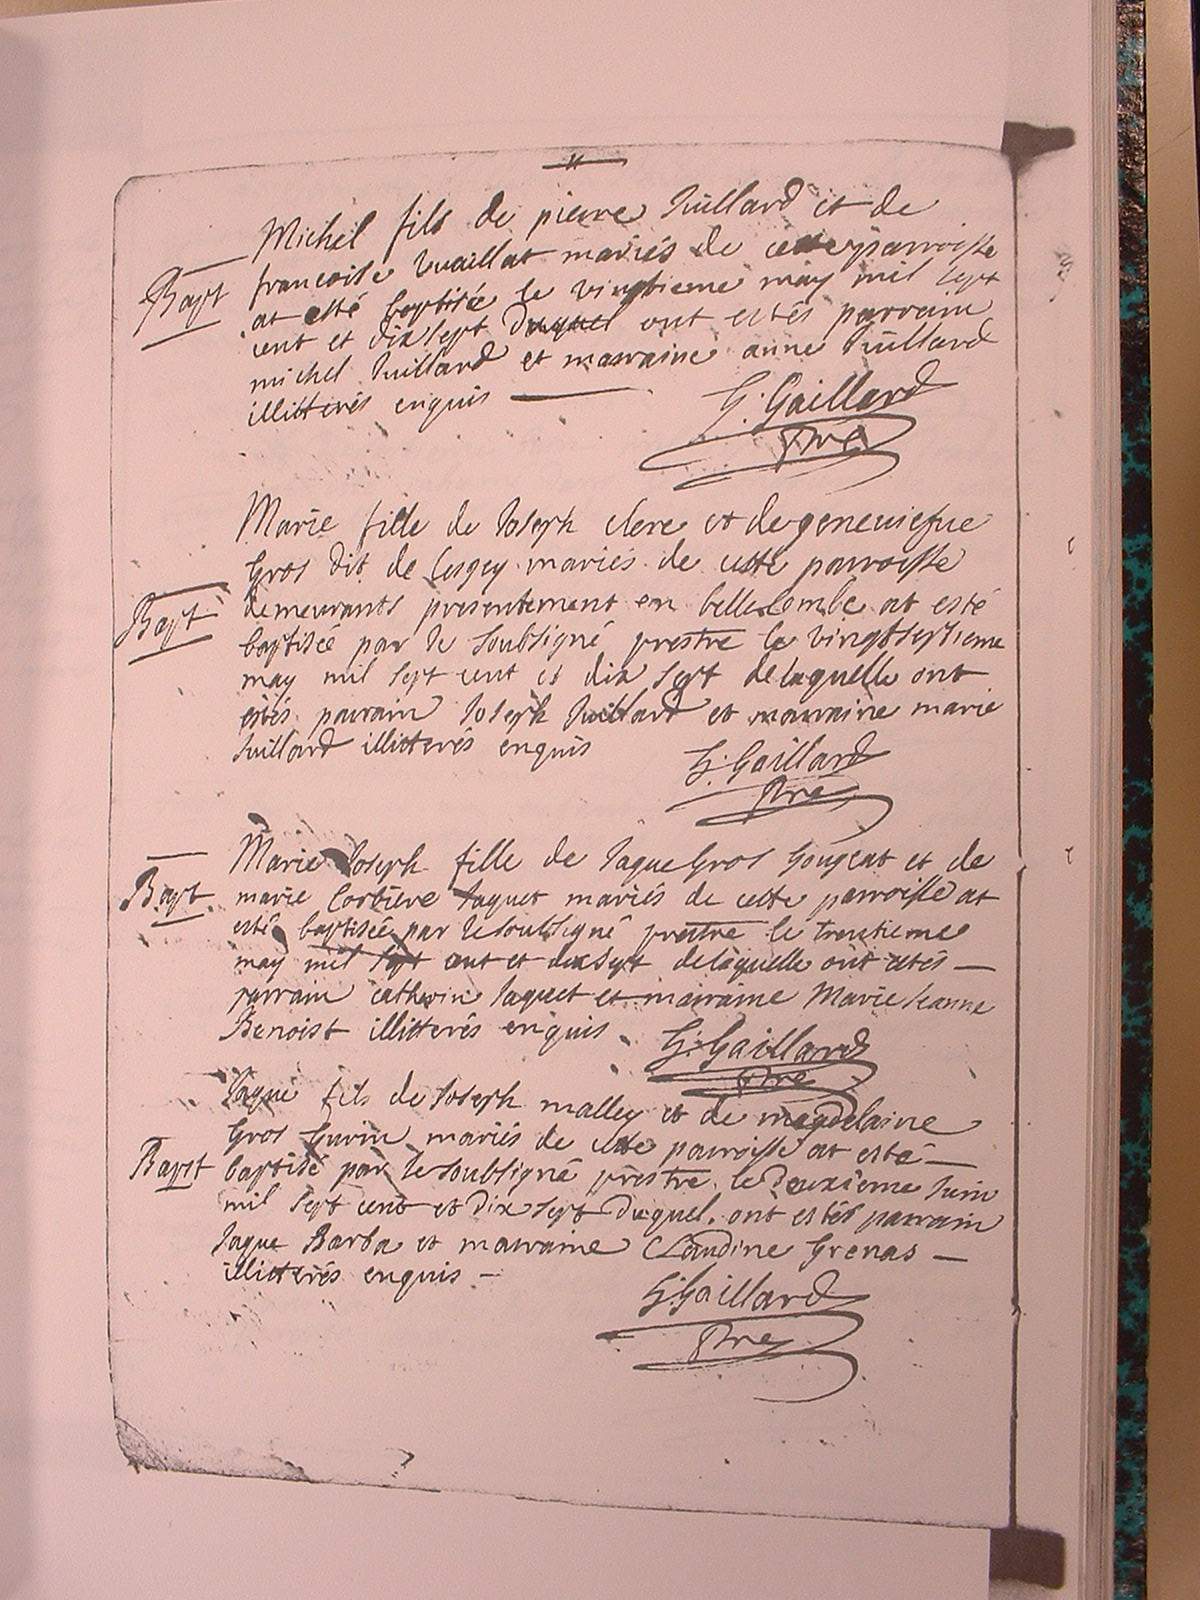 Michel fils de pierre Juillard et de
Bapt francoise Vuaillat mariés de cette parroisse
at esté baptisée le vingtieme may mil sept
cent et dix sept duquel ont estés parrain
michel Juillard et marraine anne Juillard
illitterés enquis
G. Gaillard
Pre
Marie fille de Joseph clerc et de geneuiefue
Gros dit de mariés de cette parroisse
Bapt demeurants presentement en bellecombe at esté
baptisée par le soubsigné prestre le vingtseptieme
may mil sept cent et dix sept de laquelle ont
estés parrain Joseph Juillard et marraine marie
Juillard illitterés enquis
G. Gaillard
Pre
Marie Joseph fille de Jaque Gros Gougeat et de
Bapt marie Jaquet mariés de cette parroisse at
esté baptisée par le soubsigné prestre le trentieme
may mil sept cent et dix sept de laquelle ont estés
parrain Jaquet et marraine Marie Jeanne
Benoist illitterés enquis
G. Gaillard
Pre
Jaque fils de Joseph malley et de magdelaine
Gros Gurin mariés de cette parroisse at esté
Bapt baptisé par le soubsigné prestre le deuxieme Juin
mil sept cent et dix sept duquel ont estés parrain
Jaque Barba et marraine Claudine Grenas
illitterés enquis
G. Gaillard
Pre